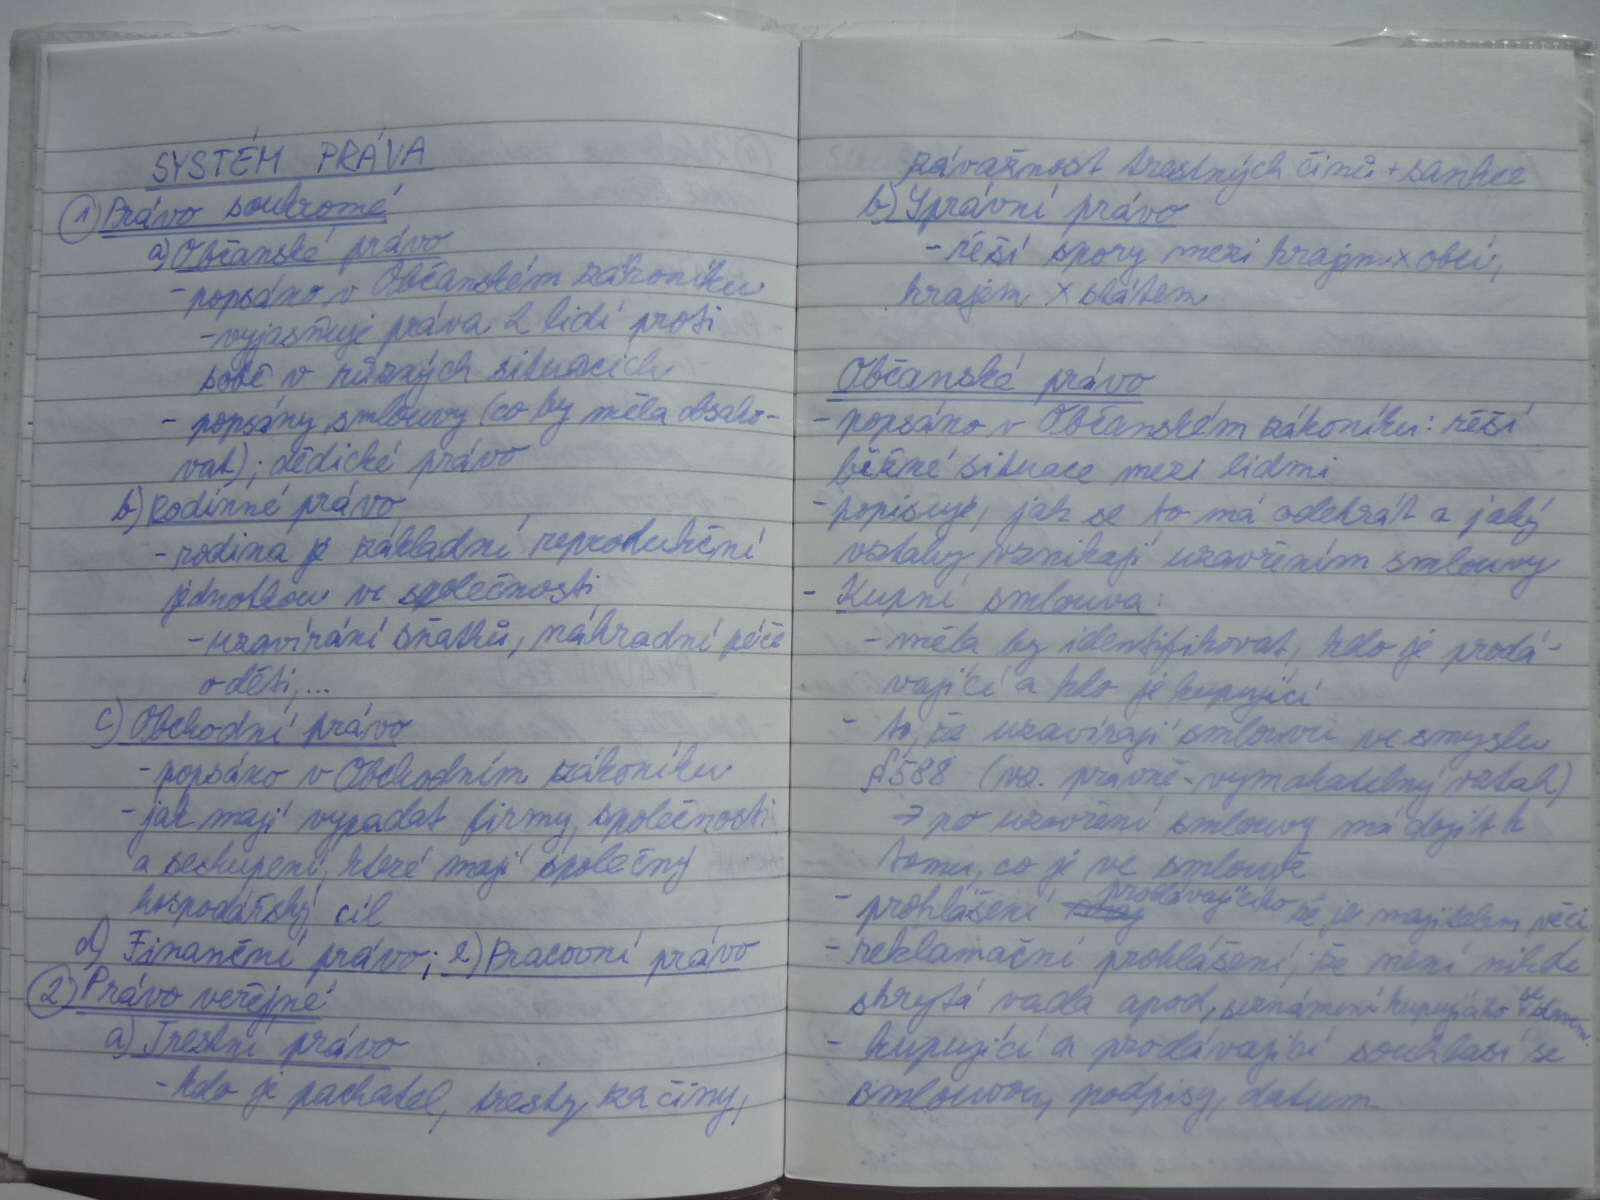 SYSTÉM PRÁVA
1) Právo soukromé
a) Občanské právo
- popsáno v Občanském zákoníku
- vyjasňuje práva 2 lidí proti
sobě v různých situacích
- popsány smlouvy (co by měla obsaho-
vat); dědické právo
b) Rodinné právo
- rodina je základní reprodukční
jednotkou ve společnosti
- uzavírání sňatků, náhradní péče
o děti,...
c) Obchodní právo
- popsáno v Obchodním zákoníku
- jak mají vypadat firmy, společnosti
a seskupení, které mají společný
hospodářský cíl
d) Finanční právo; e) Pracovní právo
2) Právo veřejné
a) Trestní právo
- kdo je pachatel, tresty za činy,
závažnost trestných činů + sankce
b) Správní právo
- řeší spory mezi krajem x obcí,
krajem x státem
Občanské právo
- popsáno v Občanském zákoníku: řeší
běžné situace mezi lidmi
- popisuje, jak se to má odehrát a jaký
vztahy vznikají uzavřením smlouvy
- Kupní smlouva:
- měla by identifikovat, kdo je prodá-
vající a kdo je kupující
- to, že uzavírají smlouvu ve smyslu
§ 588 (vz. právně-vymahatelný vztah)
→ po uzavření smlouvy má dojít k
tomu, co je ve smlouvě
- prohlášení prodávajícího že je majitelem věci
- reklamační prohlášení; že není nikde
skrytá vada apod, seznámení kupujícího se
- kupující a prodávající souhlasí se
smlouvou, podpisy, datum